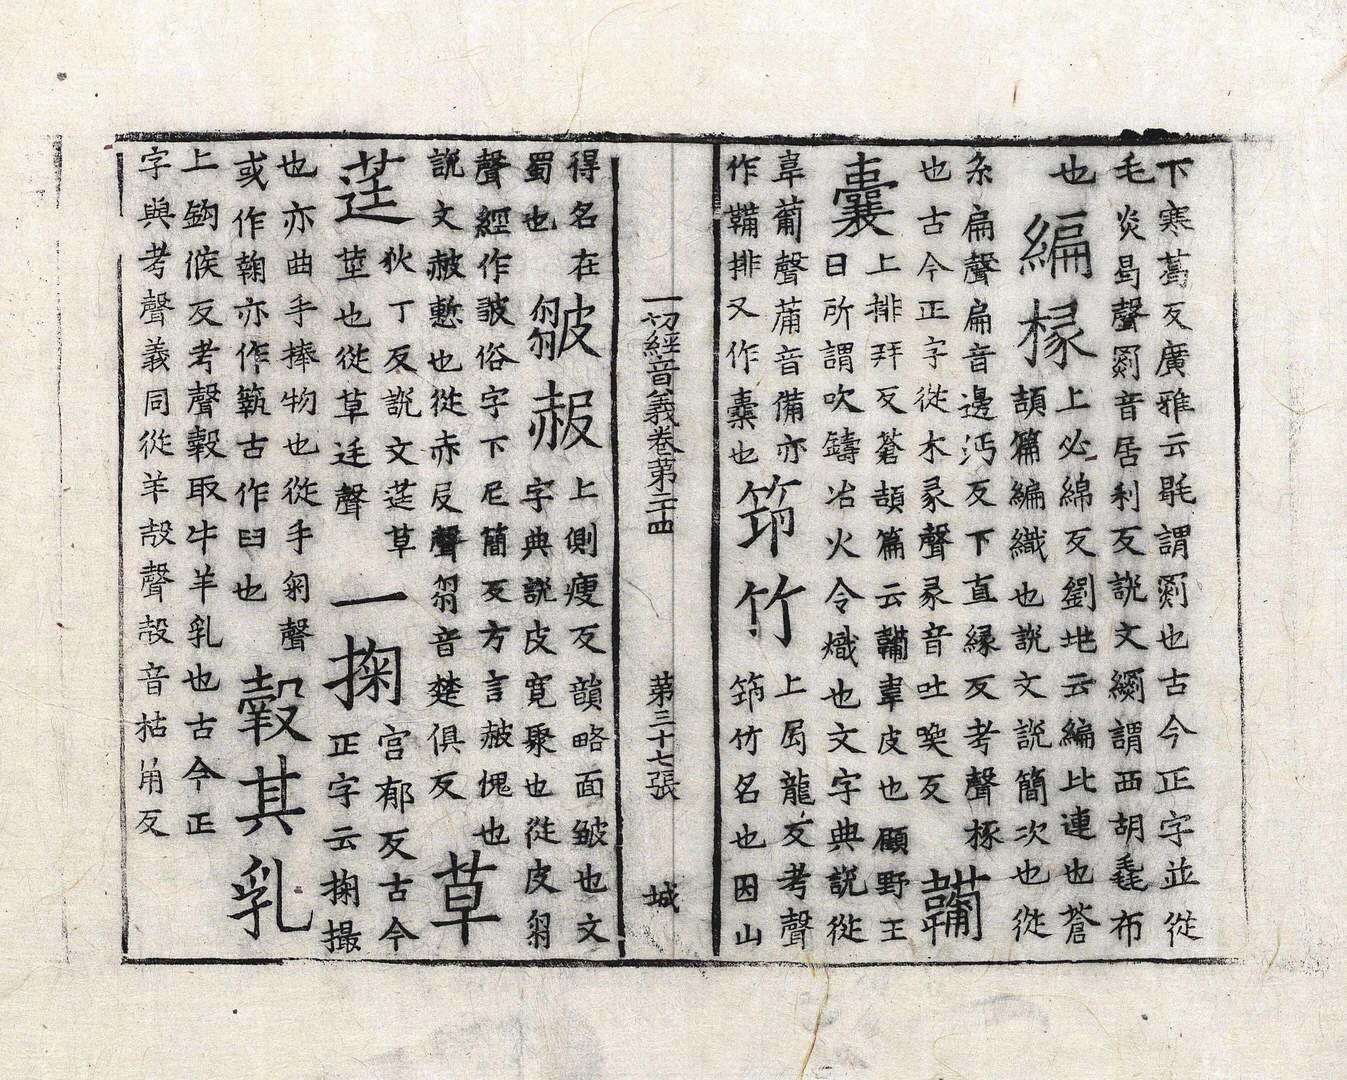 下寒葛反廣雅云毼謂罽也古今正字並從
毛炎曷聲罽音居利反說文纈謂西胡毳布
也
編椽
上必綿反劉地云編比連也蒼
頡篇編織也說文說簡次也從
糸扁聲扁音邊沔反下直緣反考聲椓
也古今正字從木彖聲彖音吐喚反
鞴
囊
上排拜反蒼頡篇云鞴韋皮也顧野王
曰所謂吹鑄冶火令熾也文字典說從
韋葡聲葡音備亦
作鞴排又作橐也
筇竹
上局龍反考聲
筇竹名也因山
一切經音義卷第二十四 第三十七張 城
得名在
蜀也
皺赧
上側瘦反韻略面皺也文
字典說皮寬聚也從皮芻
聲經作皱俗字下尼簡反方言赧愧也
說文赧慙也從赤𠬝聲芻音楚俱反
草
莛
狄丁反說文莛草
莖也從草廷聲
一掬
宮郁反古今
正字云掬撮
也亦曲手捧物也從手匊聲
或作鞠亦作䉤古作臼也
㝅其乳
上鈎候反考聲㝅取牛羊乳也古今正
字與考聲義同從羊㱿聲㱿音枯角反